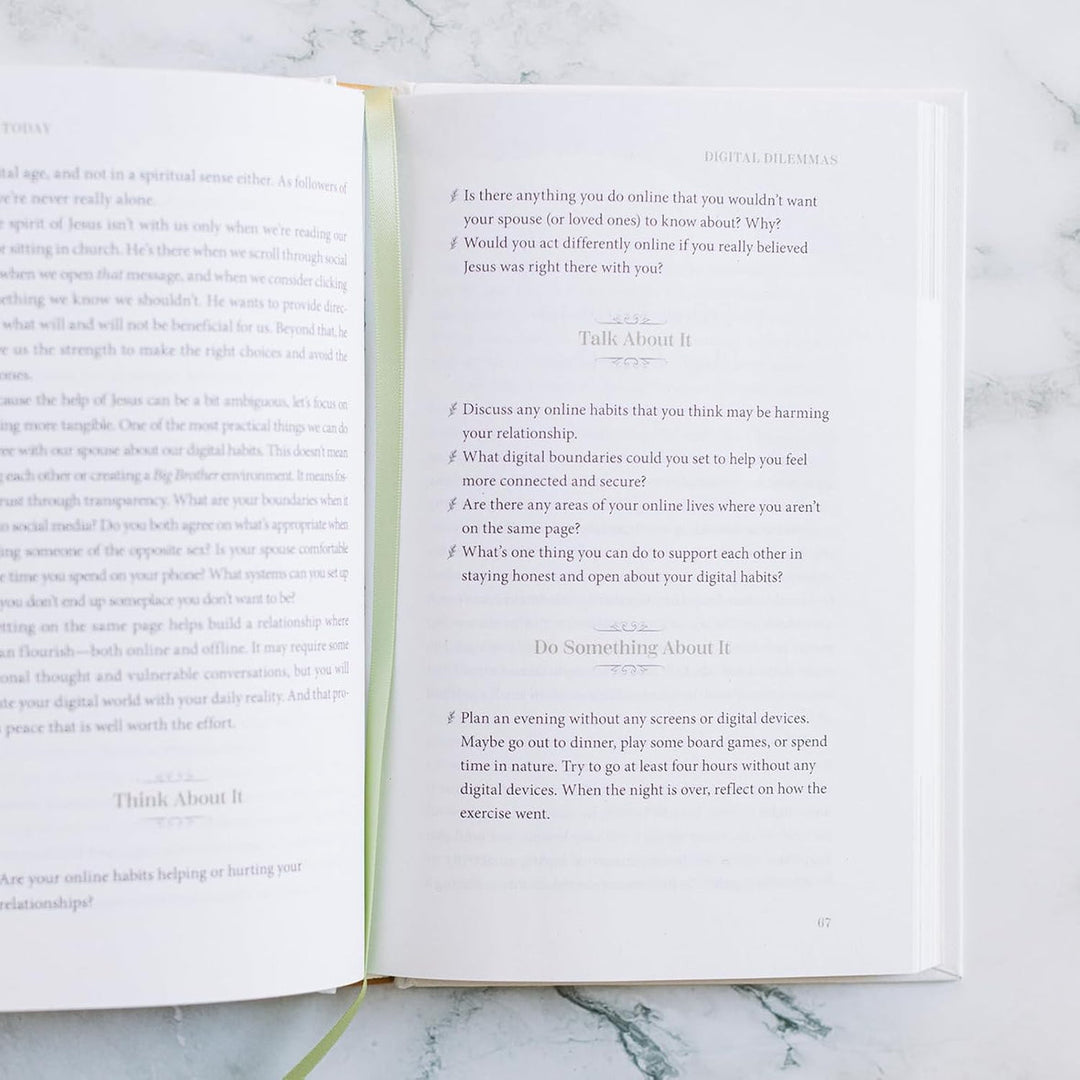 TODAY
ital age, and not in a spiritual sense either. As followers of
we're never really alone.
spirit of Jesus isn't with us only when we're reading our
sitting in church. He's there when we scroll through social
when we open that message, and when we consider clicking
ething we know we shouldn't. He wants to provide direc-
what will and will not be beneficial for us. Beyond that, he
us the strength to make the right choices and avoid the
ones.
cause the help of Jesus can be a bit ambiguous, let's focus on
ing more tangible. One of the most practical things we can do
with our spouse about our digital habits. This doesn't mean
each other or creating a Big Brother environment. It means fos-
rust through transparency. What are your boundaries when it
social media? Do you both agree on what's appropriate when
ing someone of the opposite sex? Is your spouse comfortable
time you spend on your phone? What systems can you set up
you don't end up someplace you don't want to be?
etting on the same page helps build a relationship where
an flourish—both online and offline. It may require some
onal thought and vulnerable conversations, but you will
ate your digital world with your daily reality. And that pro-
peace that is well worth the effort.
Think About It
Are your online habits helping or hurting your
relationships?
DIGITAL DILEMMAS
Is there anything you do online that you wouldn't want
your spouse (or loved ones) to know about? Why?
Would you act differently online if you really believed
Jesus was right there with you?
Talk About It
Discuss any online habits that you think may be harming
your relationship.
What digital boundaries could you set to help you feel
more connected and secure?
Are there any areas of your online lives where you aren't
on the same page?
What's one thing you can do to support each other in
staying honest and open about your digital habits?
Do Something About It
Plan an evening without any screens or digital devices.
Maybe go out to dinner, play some board games, or spend
time in nature. Try to go at least four hours without any
digital devices. When the night is over, reflect on how the
exercise went.
67